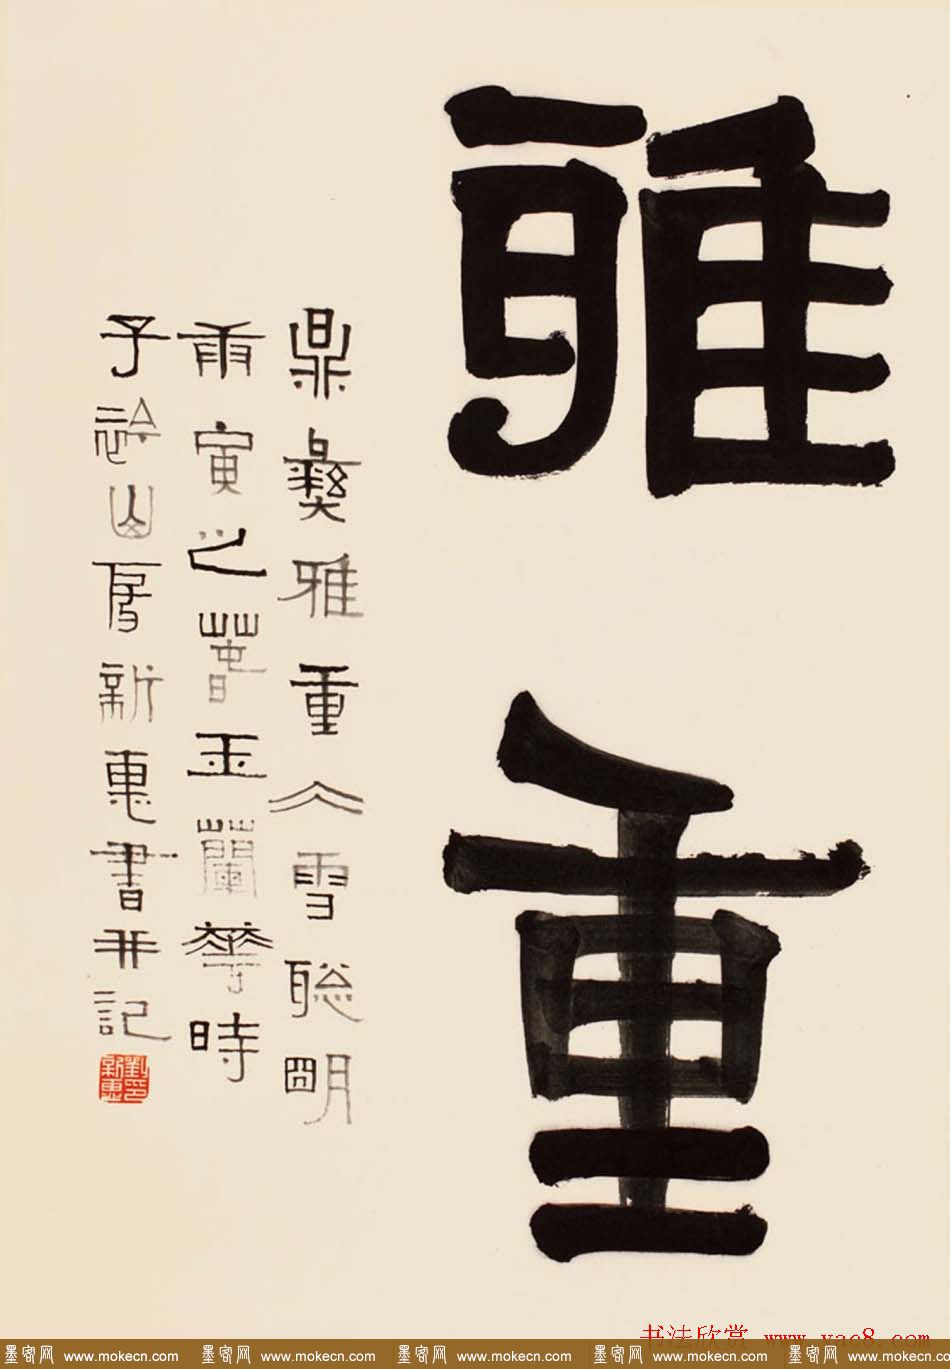 雅重
鼎彝雅重仌雪聰明
庚寅之萅玉蘭華時
于山房新惠書并記
劉印新惠
书法欣赏 www.yac8.com
墨客网 www.mokecn.com 墨客网 www.mokecn.com 墨客网 www.mokecn.com 墨客网 www.mokecn.com 墨客网 www.mokecn.com